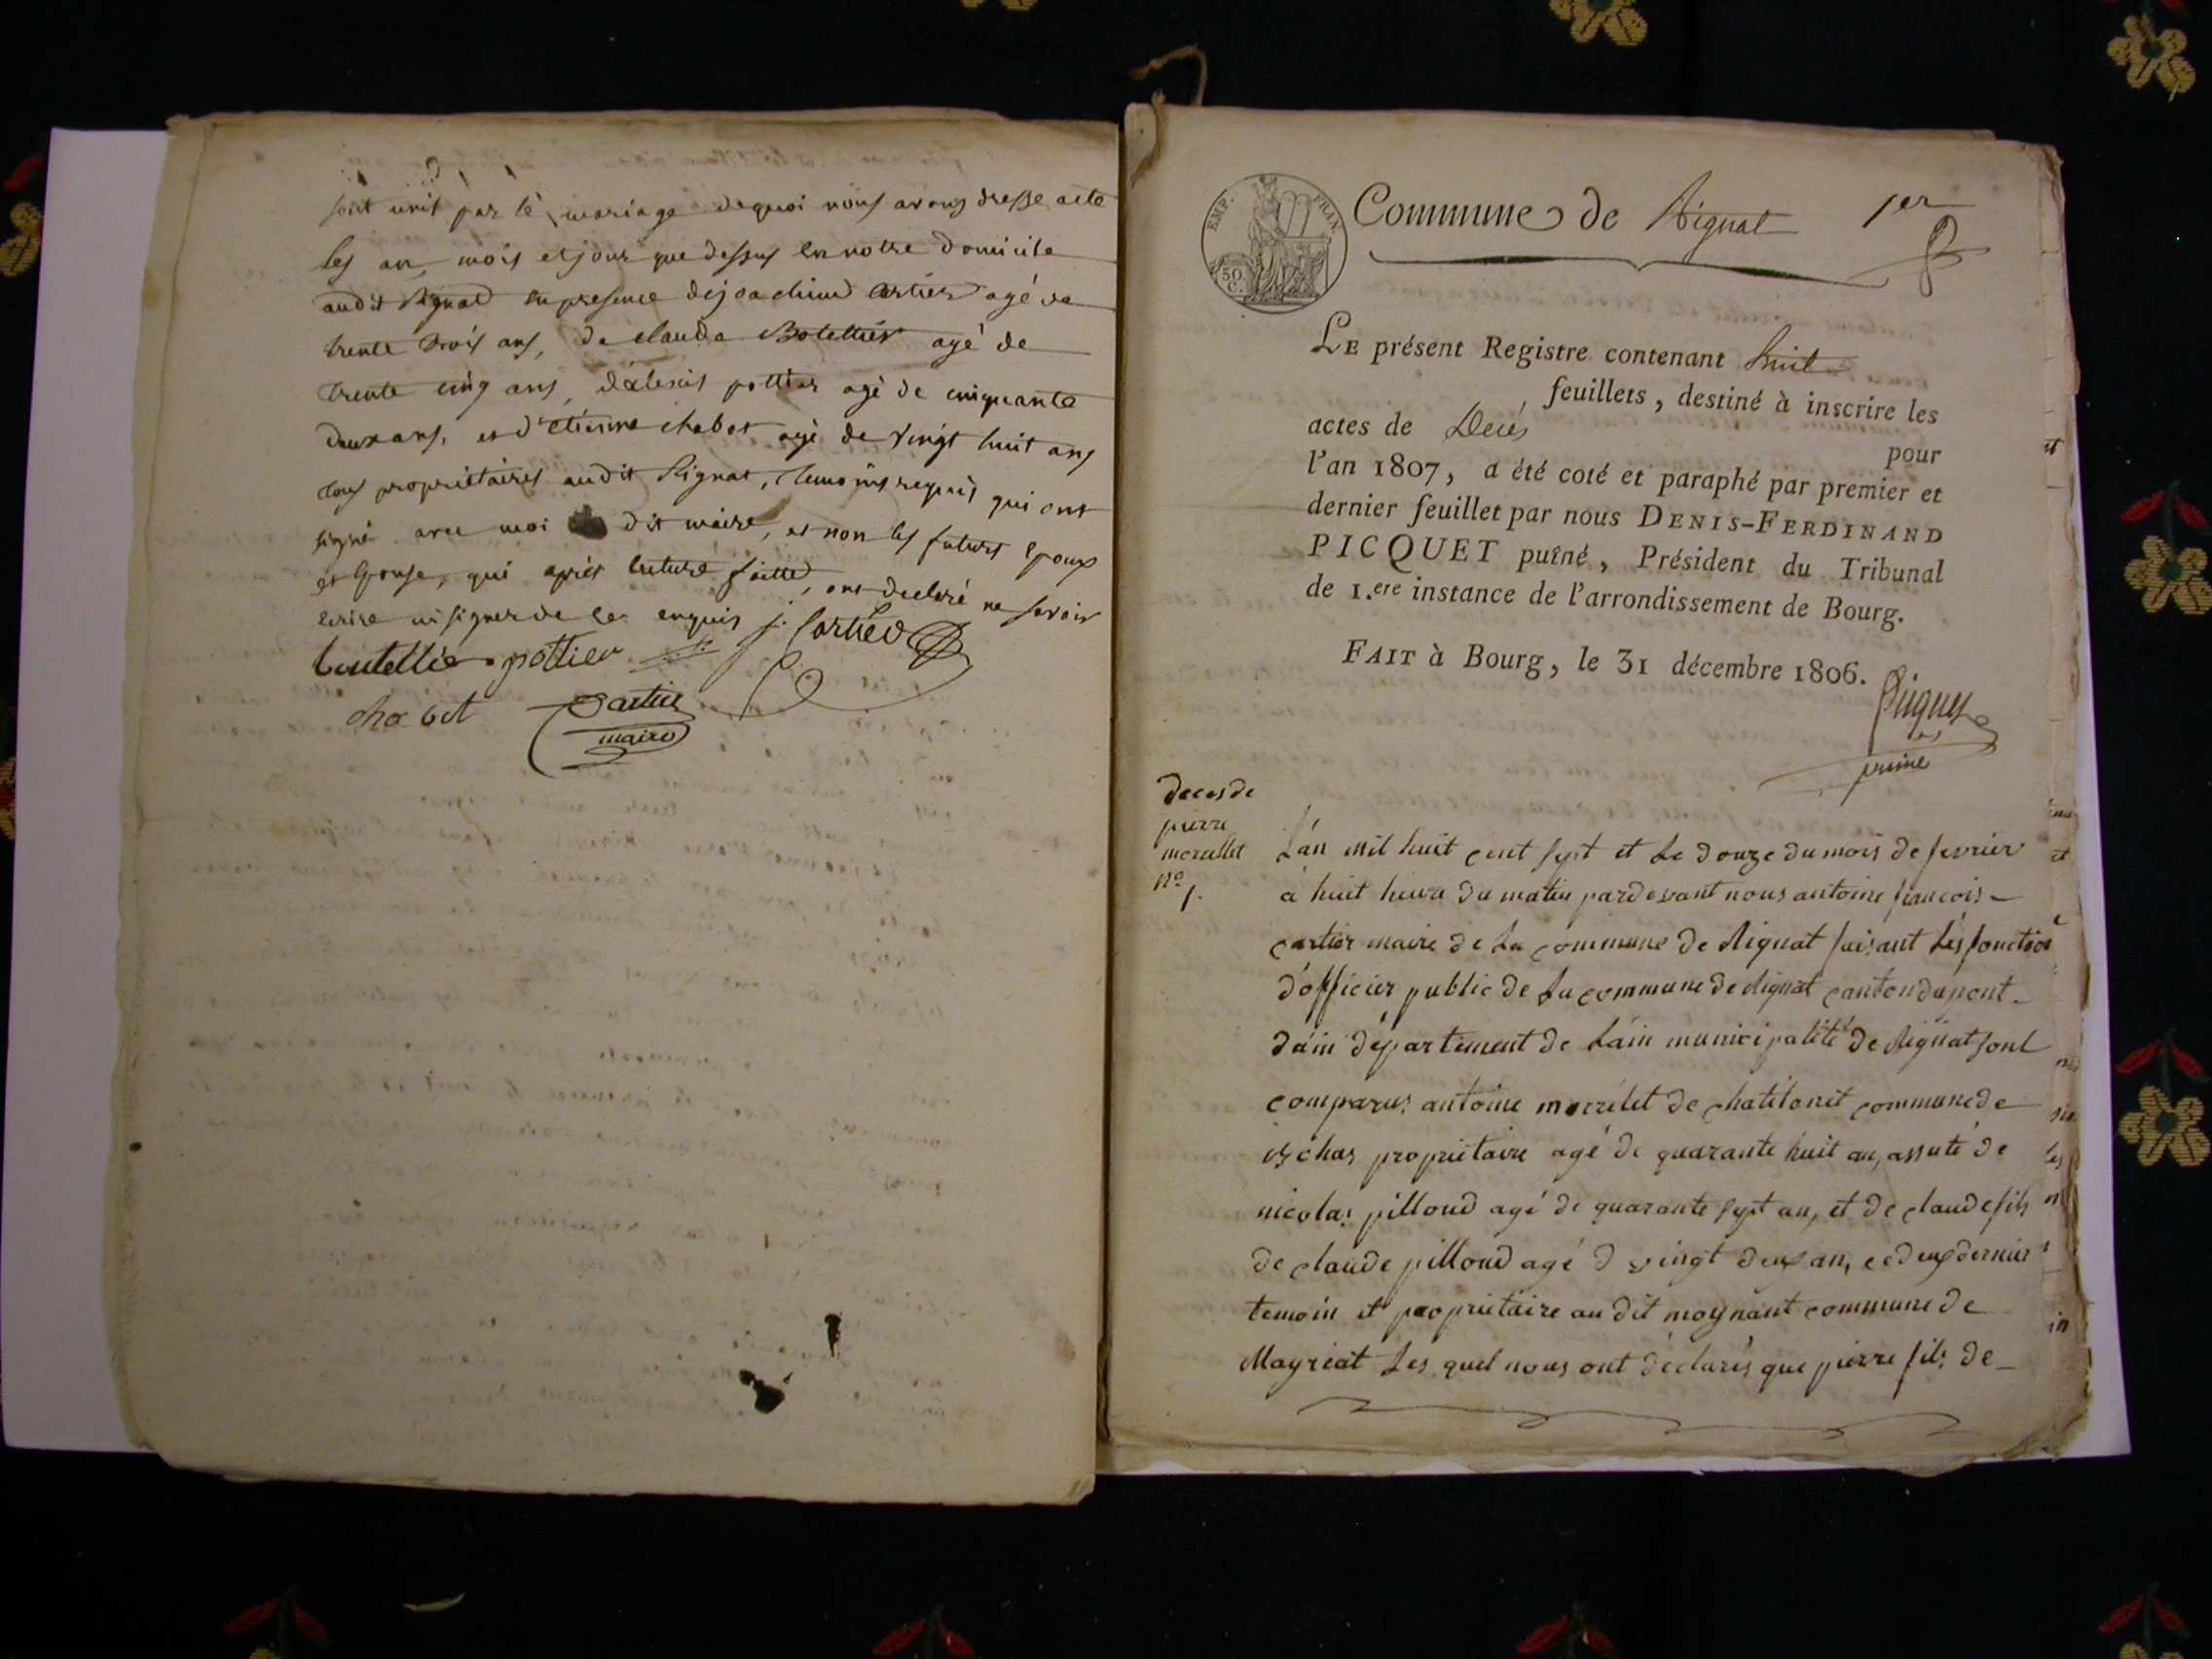 sont unit par le mariage dequoi nous avons dressé acte
les an, mois et jour que dessus en notre domicile
audit Rignat en presence dejoachim Cartier agé de
trente trois ans, de claude Botellier agé de
trente cinq ans, d'alexis pottier agé de cinquante
deux ans, et d'etienne chabot agé de vingt huit ans
tous propriétaires audit Rignat, temoins requis qui ont
signé avec moi dit maire, et non les futurs epoux
et Epouse, qui après lecture faitte, ont declaré ne savoir
ecrire ni signer de ce enquis j. Cartier
boutellier pottier
chabot Cartier
maire
EMP. FRAN.
50 C.
Commune de Rignat 1er
LE présent Registre contenant huit
feuillets, destiné à inscrire les
actes de Décés pour
l'an 1807, a été coté et paraphé par premier et
dernier feuillet par nous DENIS-FERDINAND
PICQUET puîné, Président du Tribunal
de 1.ere instance de l'arrondissement de Bourg.
FAIT à Bourg, le 31 décembre 1806.
Picquet
puiné
deces de
pierre
morellet
No
1.
L'an mil huit cent sept et le douze du mois de fevrier
à huit heure du matin pardevant nous antoine francois
cartier maire de la commune de Rignat faisant les fonction
d'officier public de la commune de Rignat canton du pont
d'ain département de l'ain municipalité de Rignat sont
comparus antoine morrelet de chatilonet commune de
propriétaire agé de quarante huit an, assisté de
nicolas pilloud agé de quarante sept an, et de claude fils
de claude pilloud agé d vingt deux an, ce deux dernier
temoin et propriétaire au dit moynant commune de
Mayriat Les quel nous ont déclarés que pierre fils de